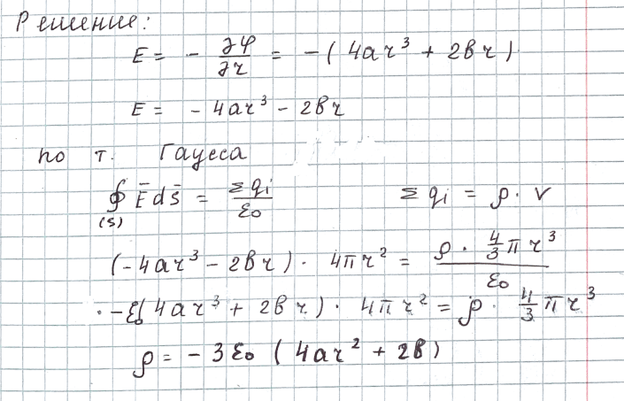 Решение:
E = - ∂φ/∂r = -(4ar³ + 2вr)
E = - 4ar³ - 2вr
по т. Гаусса
∮(S) E̅ds̅ = Σqᵢ/ε₀ Σqᵢ = ρ · V
(-4ar³ - 2вr) · 4πr² = ρ · 4/3 πr³/ε₀
· -ε₀(4ar³ + 2вr) · 4πr² = ρ · 4/3 πr³
ρ = - 3ε₀ (4ar² + 2в)